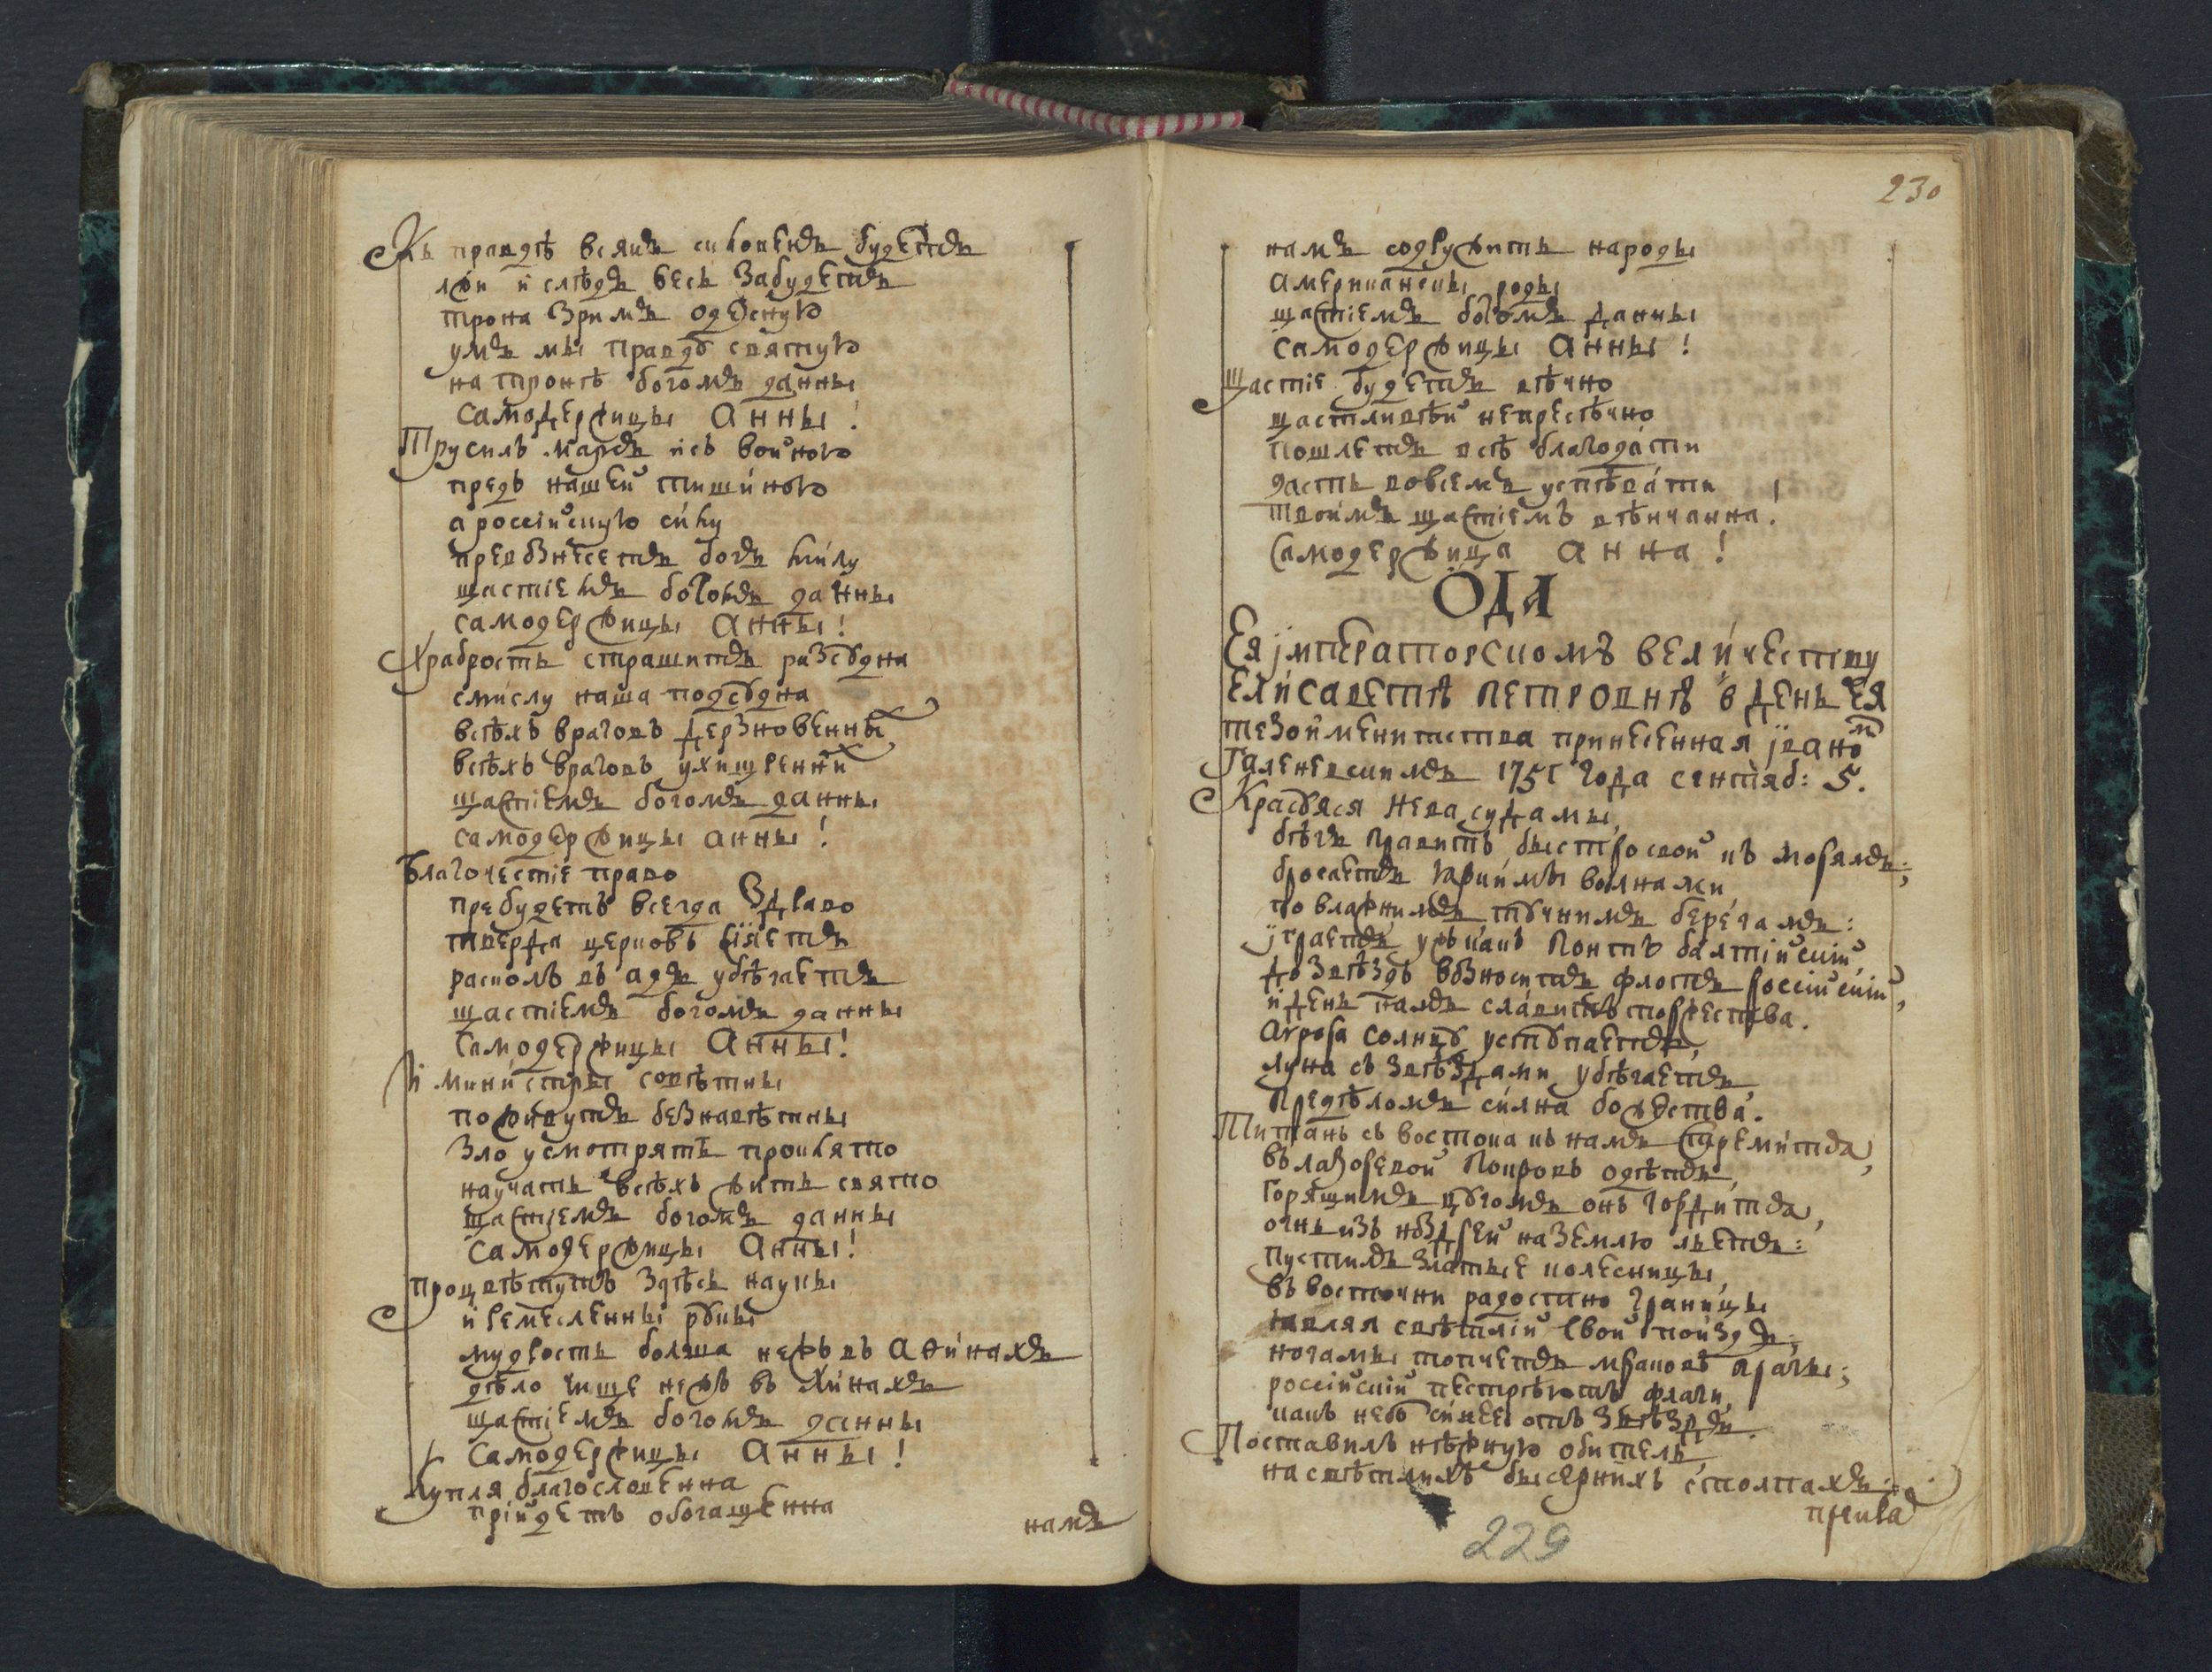 Къ правдѣ всякъ склоненъ будетъ
лжи и слѣдъ весь забудетъ
трона зримъ одесную
умъ мы правду святую
на тронѣ богомъ данны
самодержицы Анны!
Трусилъ марсъ ись войною
предъ нашей тишиною
а россійскую силу
превзнесетъ богъ милу
щастіемъ богомъ данны
самодержицы Анны!
Храбрость страшитъ разсудна
смислу наша подсудна
всѣхъ враговъ дерзновенны
всѣхъ враговъ ухищренни
щастіемъ богомъ данны
самодержицы анны!
Благочестіе право
пребудетъ всегда здраво
тверда церковь сіяетъ
расколъ въ адъ убѣгаетъ
щастіемъ богомъ данны
самодержицы Анны!
И министры совѣтны
поживутъ безнавѣтны
Зло усмотрятъ проклято
научатъ всѣхъ жить свято
щастіемъ богомъ данны
самодержицы Анны!
Процвѣтутъ здѣсь науки
и ремесленны руки
мудрость болша нежъ въ Аѳинахъ
дѣло чище нежъ въ Хинахъ
щастіемъ богомъ данны
самодержицы Анны!
Купля благословенна
пріидетъ обогащенна
намъ
230
намъ содружитъ народы
американски роды
щастіемъ богомъ данны
самодержицы Анны!
Щастіе будетъ вѣчно
щастливѣй непресѣчно
пошлетъ всѣ благодати
дастъ вовсемъ успѣвати
твоимъ щастіемъ вѣнчанна!
Самодержица Анна!
ОДА
Ея імператорскомъ величеству
Елисаветѣ Петровнѣ в день Ея
тезоименитства принесенная іваном
Галеневскимъ 1751 года сентяб: 5.
Красуяся Нева судами,
бѣгъ правитъ быстро свой къ морямъ;
бросаетъ крийми волнами
по влажнимъ тучнимъ берегамъ:
іграетъ ужъ какъ Понтъ балтійскій,
до звѣздъ взноситъ флотъ россійскій,
и день намъ славитъ торжества.
Аврора солнцу уступаетъ,
луна съ звѣздами убѣгаетъ
Предѣломъ силна божества.
Титанъ съ востока къ намъ стремится,
въ лазоревой покровъ одѣтъ,
Горящимъ цугомъ онъ гордится,
огнь изъ ноздрей на землю льетъ:
пустилъ златые колесницы,
въ восточни радостно границы
являя свѣтлій свой поиздъ;
ногамы топчетъ мраковъ праги;
россійскій пестрѣютъ флаги,
какъ небо синее отъ звѣздъ.
Поставилъ нѣжную обитель,
на свѣтлихъ бысернихъ столпахъ;
прекла
229